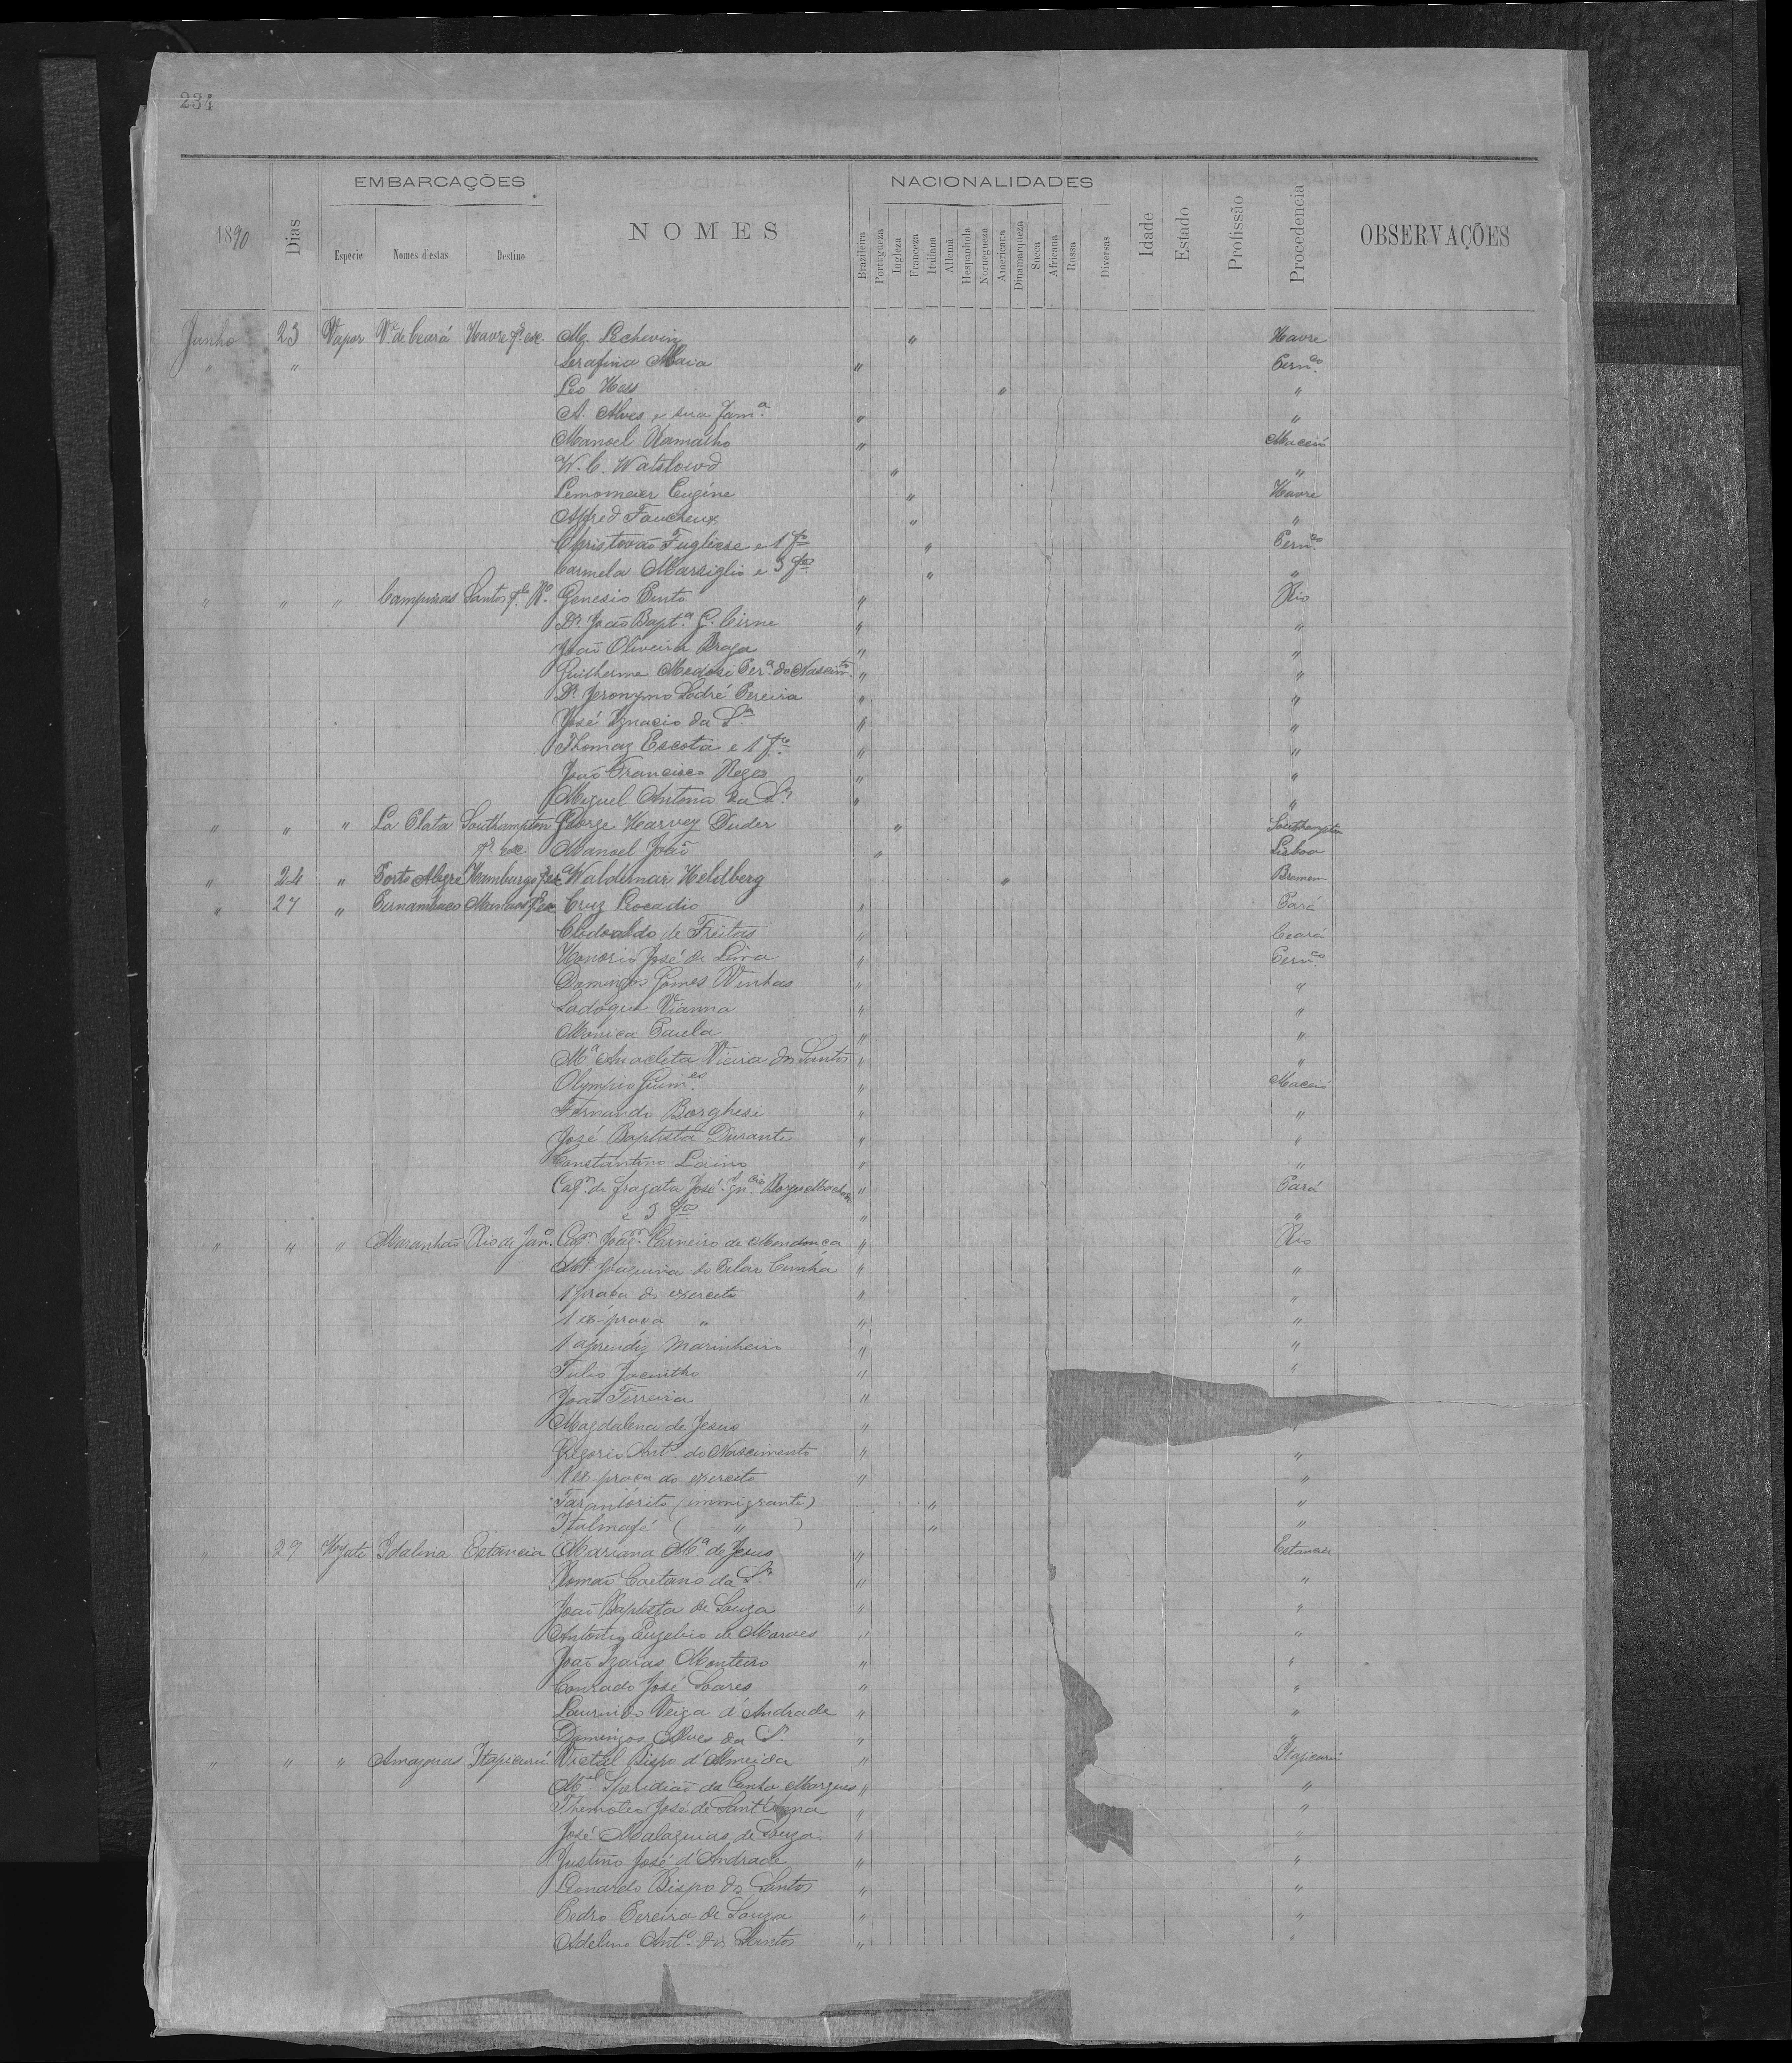 234
EMBARCAÇÕES NACIONALIDADES
1890 Dias Especie Nomes d'estas Destino NOMES Brazileira Portugueza Ingleza Franceza Italiana Allemã Hespanhola Nornegueza Americana Dinamarqueza Sueca Africana Russa Diversas Idade Estado Profissão Procedencia OBSERVAÇÕES
Junho 23 Vapor Vª de Ceará Havre p.r esc. Mg. Lechevin " Havre
" " Serafina Maia " Pern.co
Léo Hess " "
A. Alves e sua fam.a " "
Manoel Ramalho " Maceió
W. C. " "
Eugéne " Havre
Alfred Faucheux " "
Christovão e 1 fo " Pern.co
Carmela Marsiglio e 3 fos " "
" " " Campinas Santos p.lo Rº. Genesio Pinto " Rio
Dr. João Bapt.a G. Cirne " "
João Oliveira Braga " "
Guilherme Per.a do Nascim.to " "
Dr. Jeronymo Sodré Pereira " "
José Ignacio da S.a " "
Thomaz Escota e 1 fo " "
João Francisco Reges " "
Miguel Antonio da S.a " "
" " " La Plata Southampton George Harvey Duder " Southampton
p.r esc. Manoel João " Lisboa
" 24 " Porto Alegre Hamburgo p. esc. Waldemar Heldberg " Bremen
" 27 " Pernambuco Manaos p. esc. Cruz Leocadio " Pará
Clodoaldo de Freitas " Ceará
Honorio José de Lima " Pern.co
Domingos Gomes Vinhas " "
Sadoque Vianna " "
Monica Paula " "
M.a Anacleta Vieira dos Santos " "
Olympio Guim.es " Maceió
Fernando Borghesi " "
José Baptista Durante " "
Constantino Laino " "
Cap.m de fragata José Ign.cio Borges Machado " Pará
e 3 fos " "
" " " Maranhão Rio de Jan.o Cap.m Joaq.m Carneiro de Mendonça " Rio
Joaquina do Pilar Cunha " "
1 praça do exercito " "
1 ex-praça " " "
1 aprendiz marinheiro " "
Tulio Jacintho " "
João Ferreira "
Magdalena de Jesus " "
Gregorio Ant.o do Nascimento " "
1 ex-praça do exercito " "
(immigrante) " "
( " ) " "
" 29 Hyate Idalina Estancia Mariana M.a de Jesus " Estancia
Romão Caetano da S.a " "
João Baptista de Souza " "
Euzebio de " "
João Izaias Monteiro " "
Conrado José Soares " "
Laurindo Veiga d'Andrade " "
Domingos Alves da S.a " "
" " " Amazonas Itapicurú Victal Bispo d'Almeida " Itapicurú
M.el Speridião da Cunha Marques " "
Themoteo José de Sant'Anna " "
José Malaquias de Souza " "
Justino José d'Andrade " "
Leonardo Bispo dos Santos " "
Pedro Pereira de Souza " "
Adelino Ant.o dos Santos " "